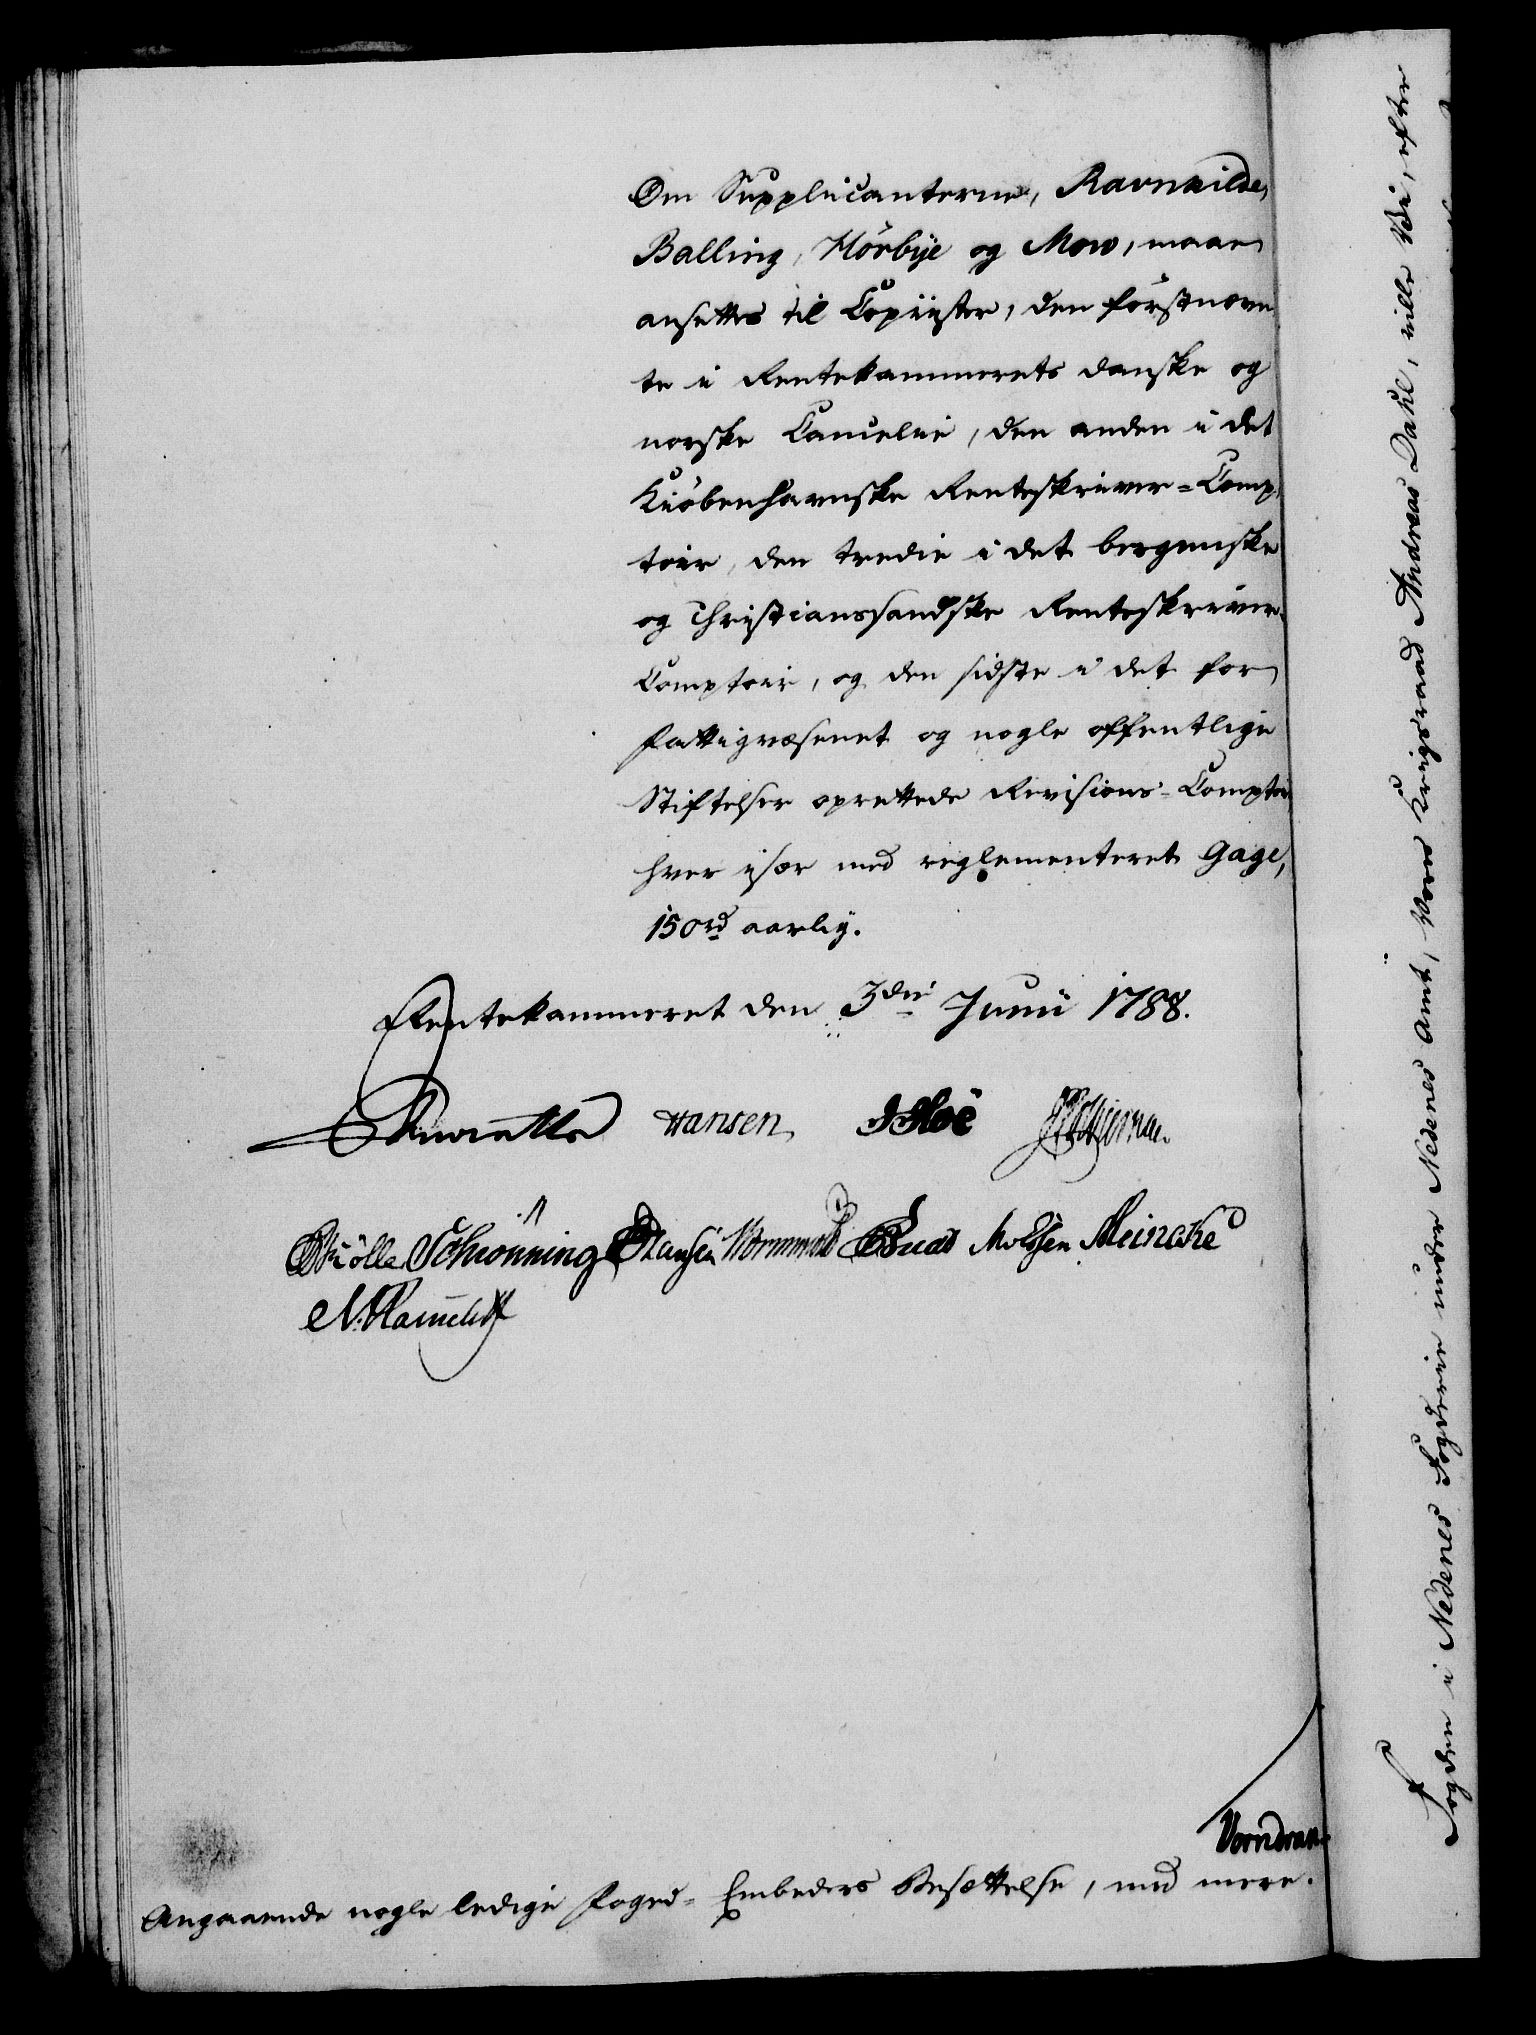 Om Supplicanterne, Ravnkilde,
Balling, Hörbÿe og Mow, maae
ansettes til Copiister, den förstnevn
te i Rentekammerets danske og
norske Cancelie, den anden i det
Kiöbenhavnske Renteskriver-Comp,
toir, den tredie i det bergenske
og Christianssandske Renteskriver-
Comptoir, og den sidste i det for
Fattigvæsenet og nogle offentlige
Stiftelser oprettede Revisions-Comptoir
hver især med reglementeret Gage,
150 rd aarlig.
Rentekammeret den 3die Junii 1788.
Hansen
Schiönning Hansen Wormwold Meincke
Vorndran.
Angaaende nogle ledige Foged-Embeders Besættelse, med mere.
Fogden i Nedenes Fogderie under Nedenes Amt, Vores Krigsraad Andreas Dahl, ville Vi, efter